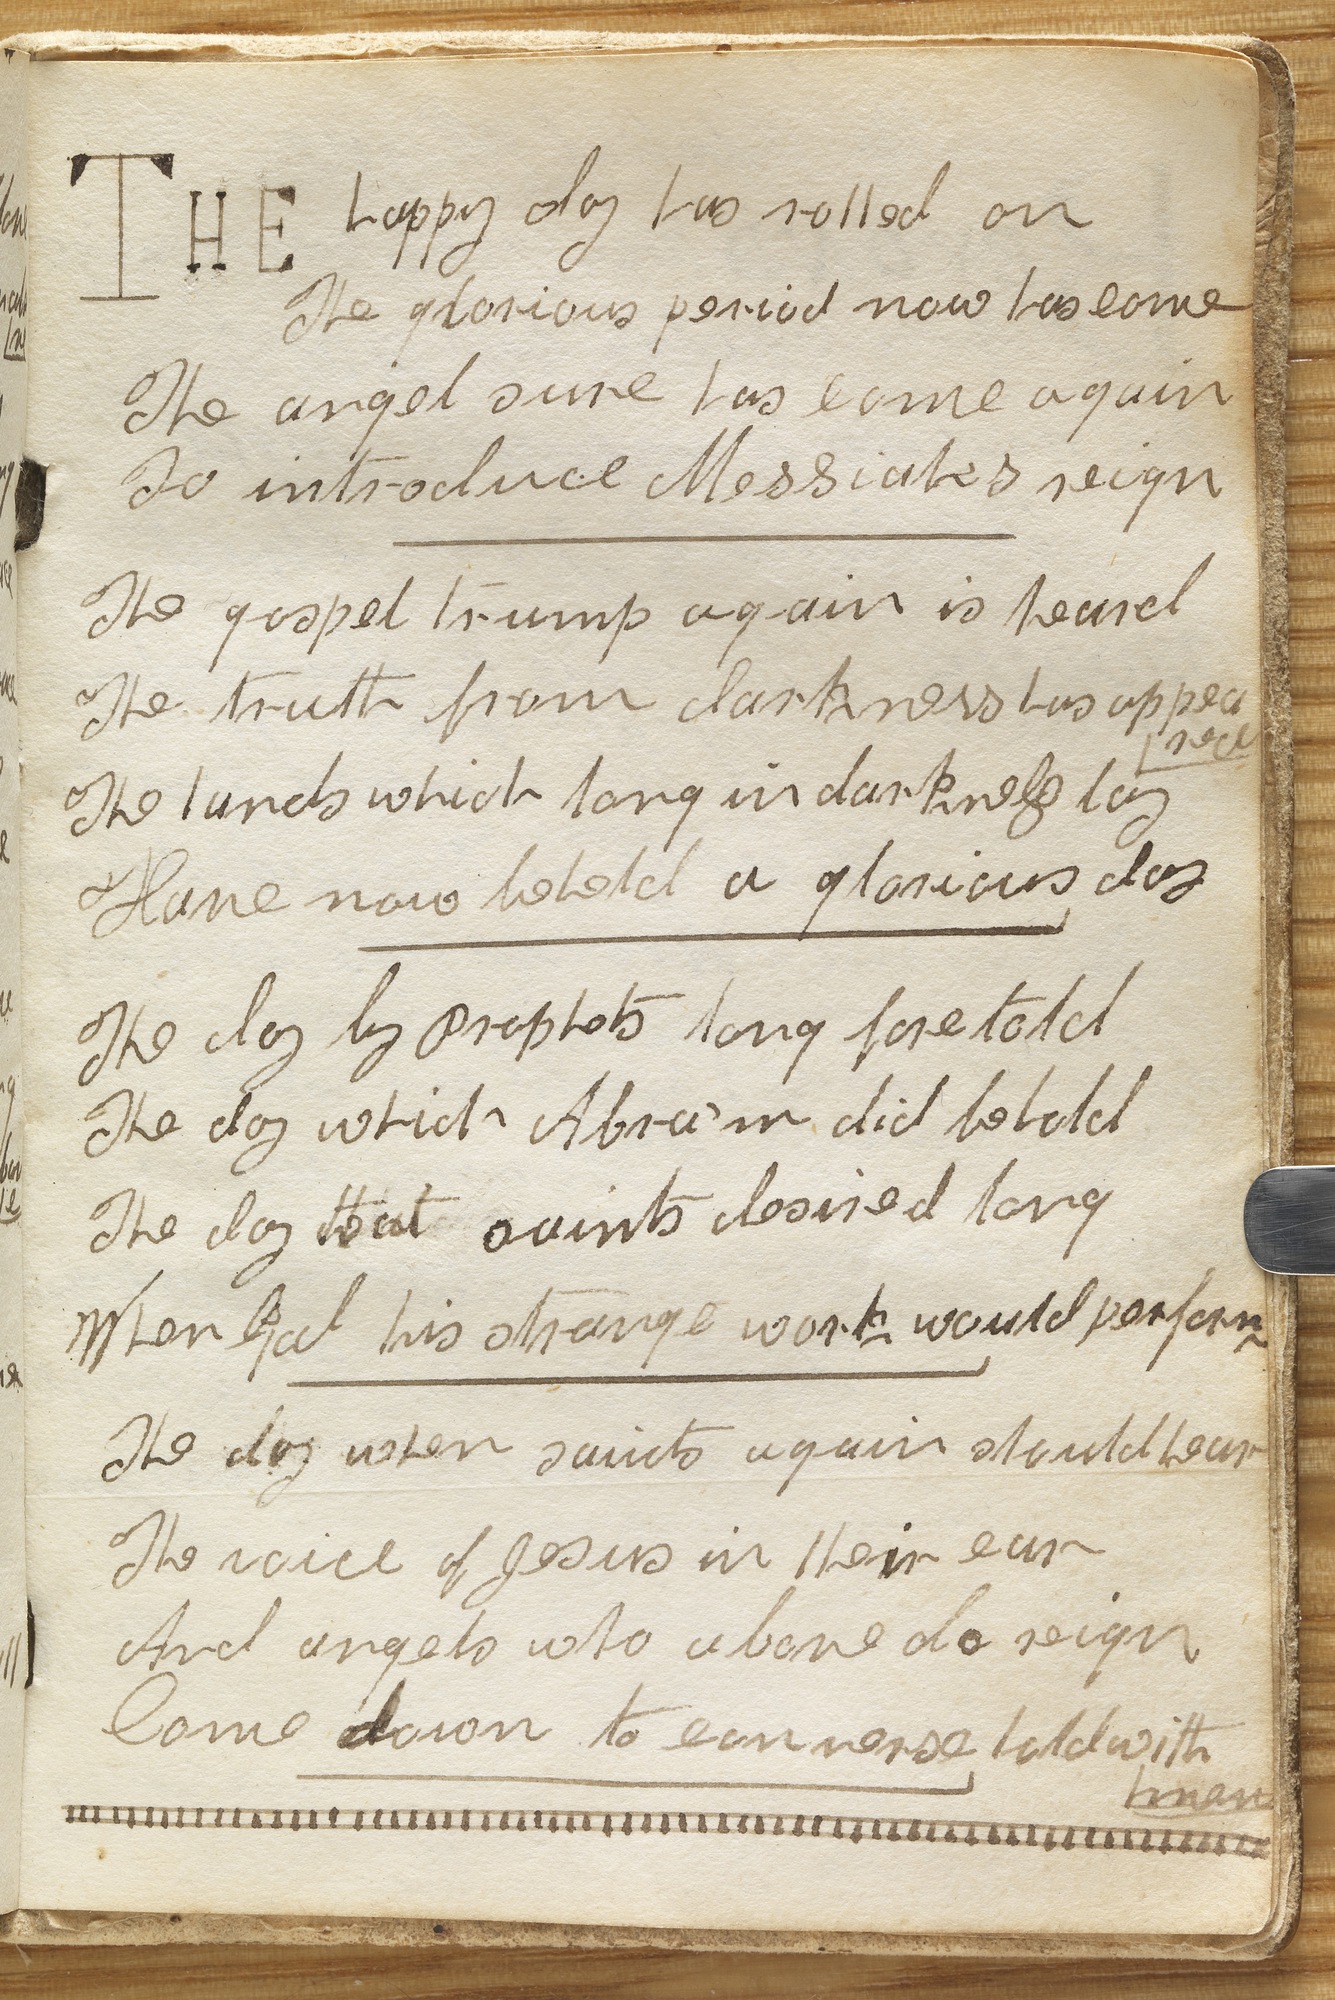 THE happy day has rolled on
The glorious period now has come
The angel sure has come again
To introduce Messiahs reign
The gospel trump again is heard
The truth from darkness has appea
red
The lands which long in darkness lay
Have now beheld a glorious day
The day by Prophets long foretold
The day which Abra'm did behold
The day that saints desired long
When God his strange work would perform
The day when saints again should hear
The voice of Jesus in their ear
And angels who above do reign
Come down to converse hold with
men